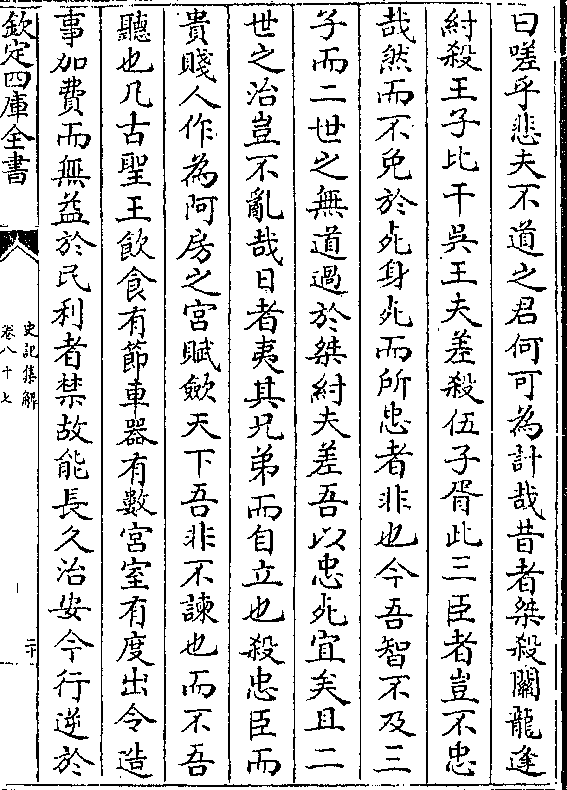 曰嗟乎悲夫不道之君何可為計哉昔者桀殺關龍逢
紂殺王子比干吳王夫差殺伍子胥此三臣者豈不忠
哉然而不免於死身死而所忠者非也今吾智不及三
子而二世之無道過於桀紂夫差吾以忠死宜矣且二
世之治豈不亂哉日者夷其兄弟而自立也殺忠臣而
貴賤人作為阿房之宮賦歛天下吾非不諫也而不吾
聽也凡古聖王飲食有節車器有數宮室有度出令造
事加費而無益於民利者禁故能長久治安今行逆於
欽定四庫全書
史記集解
卷八十七
二十